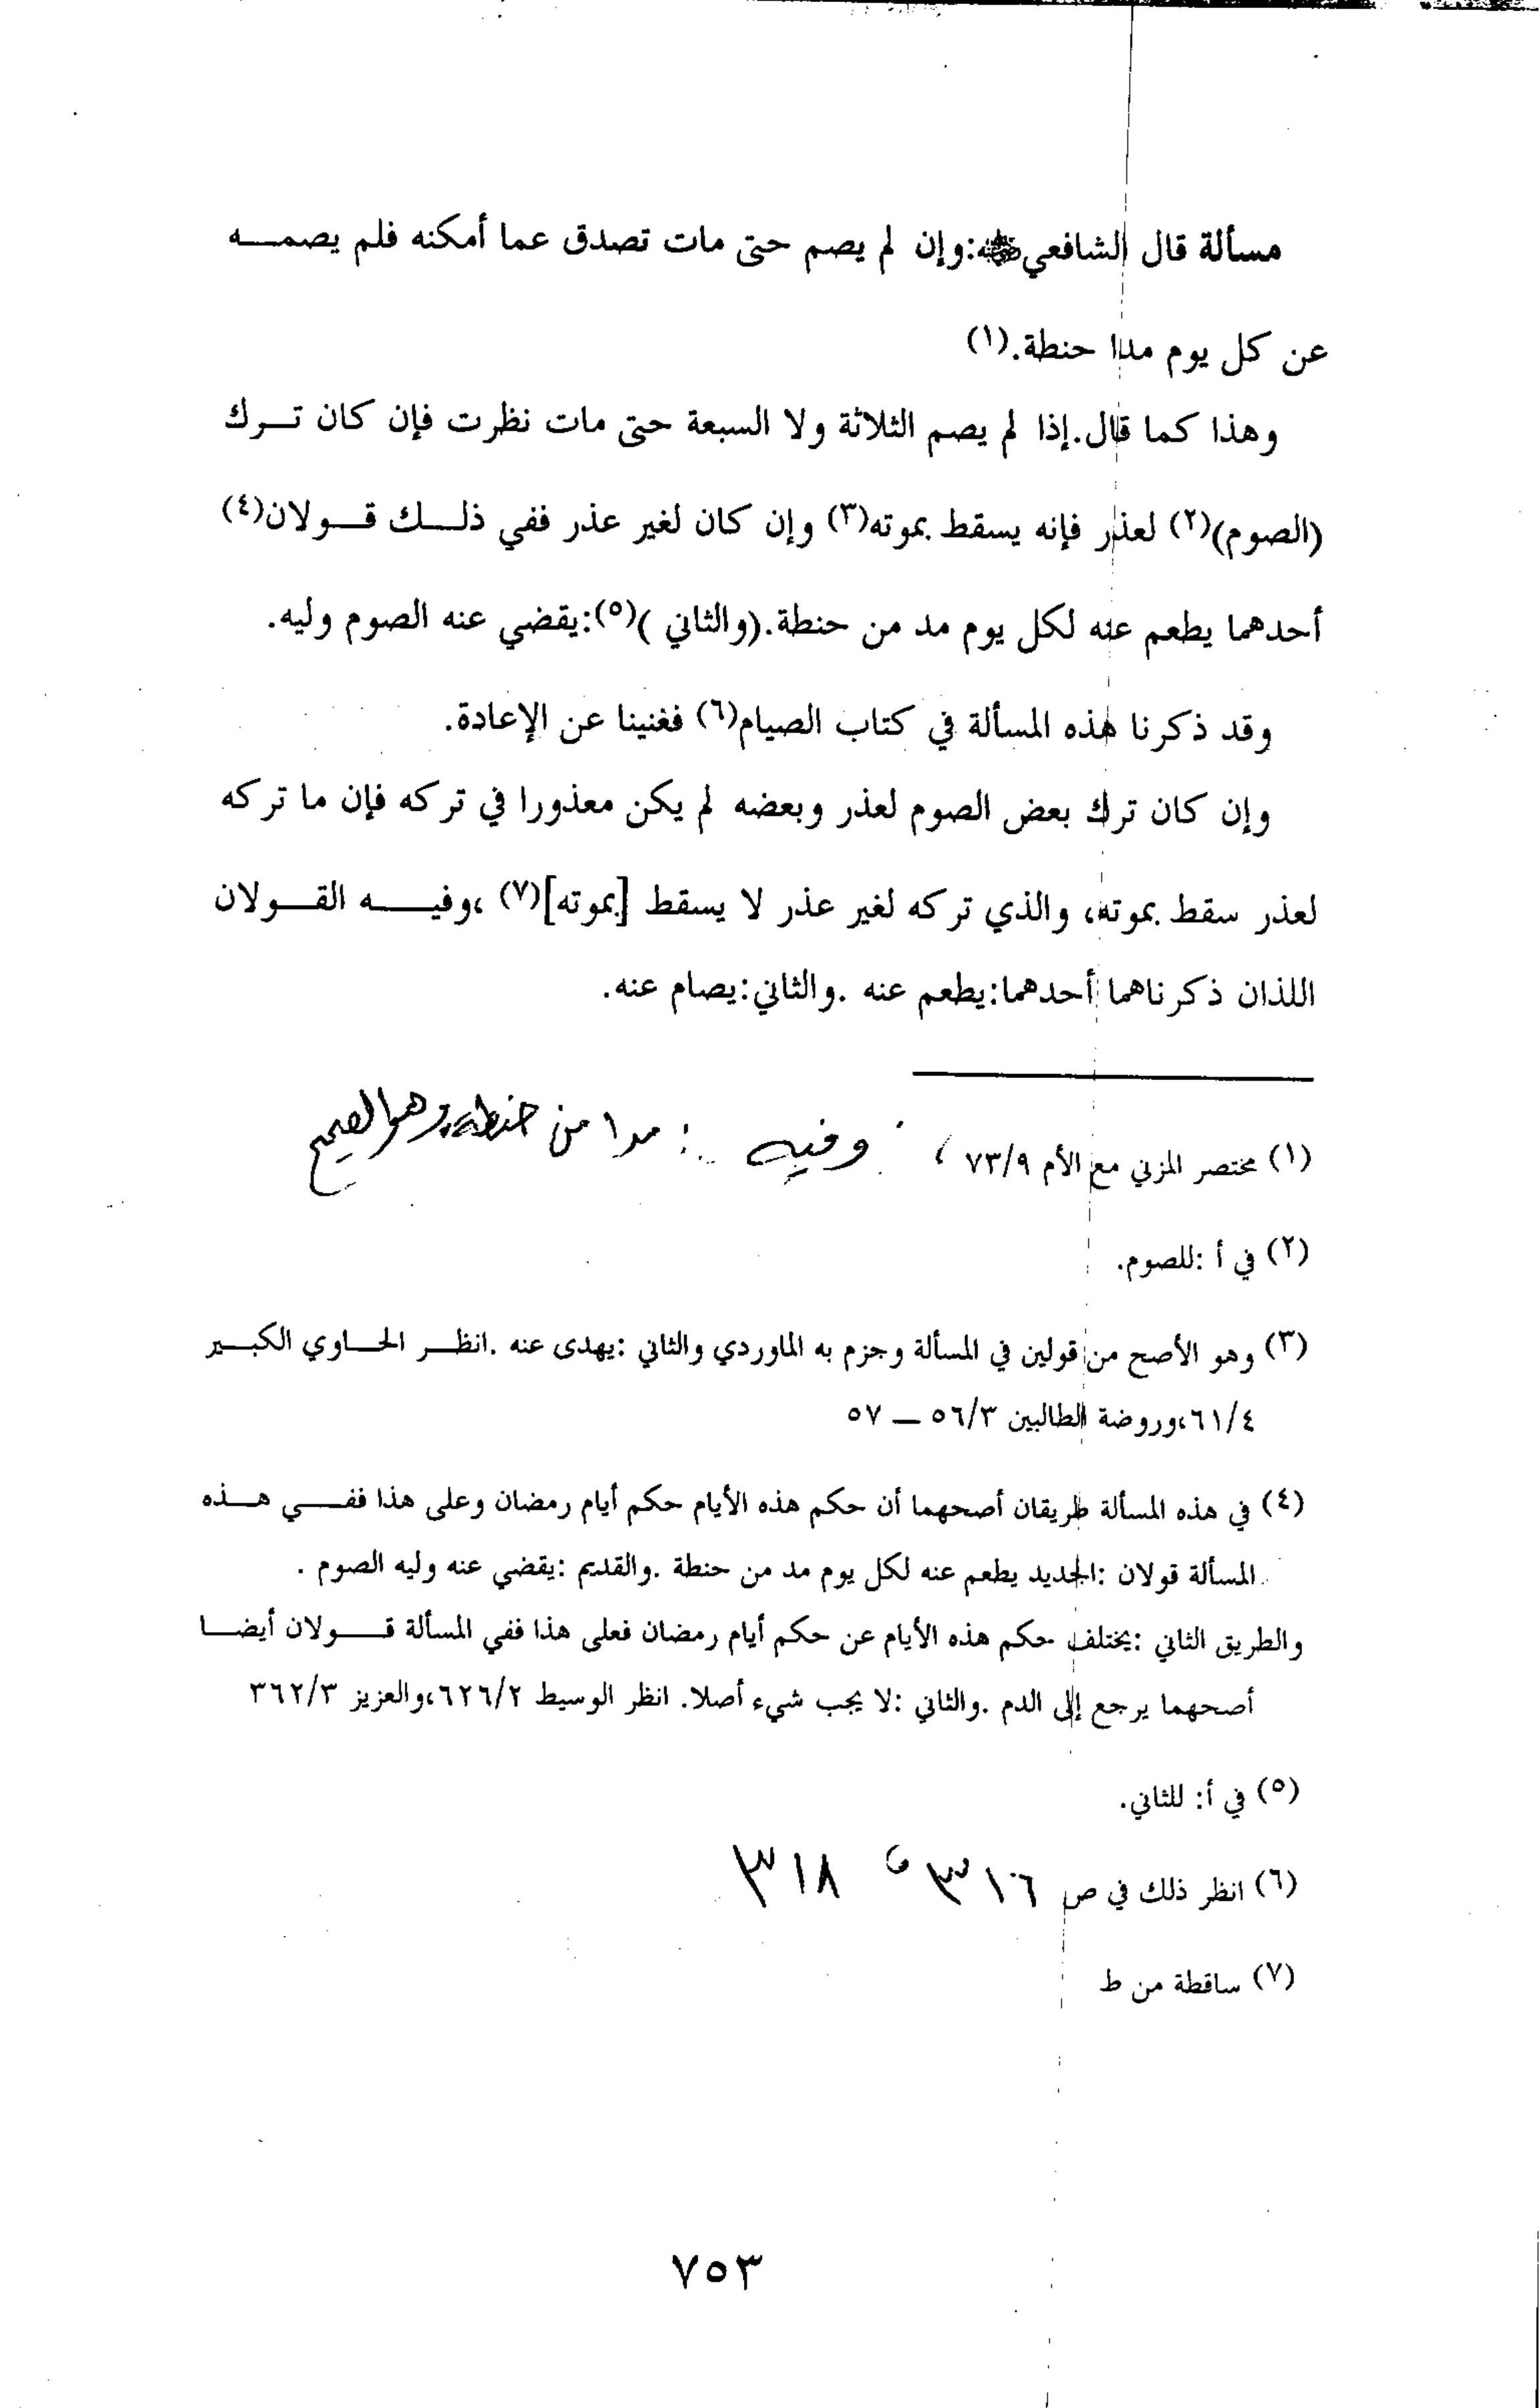 مسألة قال الشافعي رضي الله عنه:وإن لم يصم حتى مات تصدق عما أمكنه فلم يصمـــه
عن كل يوم مدا حنطة.(١)
وهذا كما قال.إذا لم يصم الثلاثة ولا السبعة حتى مات نظرت فإن كان تـــرك
(الصوم)(٢) لعذر فإنه يسقط بموته(٣) وإن كان لغير عذر ففي ذلـــك قـــولان(٤)
أحدهما يطعم عنه لكل يوم مد من حنطة.(والثاني )(٥):يقضي عنه الصوم وليه.
وقد ذكرنا هذه المسألة في كتاب الصيام(٦) فغنينا عن الإعادة.
وإن كان ترك بعض الصوم لعذر وبعضه لم يكن معذورا في تركه فإن ما تركه
لعذر سقط بموته، والذي تركه لغير عذر لا يسقط [بموته](٧) ،وفيـــه القـــولان
اللذان ذكرناهما أحدهما:يطعم عنه .والثاني:يصام عنه.
(١) مختصر المزني مع الأم ٧٣/٩ ، وفيه : مدا من حنطة، وهو الصحيح
(٢) في أ :للصوم.
(٣) وهو الأصح من قولين في المسألة وجزم به الماوردي والثاني :يهدى عنه .انظـــر الحـــاوي الكبـــير
٦١/٤،وروضة الطالبين ٥٦/٣ ــ ٥٧
(٤) في هذه المسألة طريقان أصحهما أن حكم هذه الأيام حكم أيام رمضان وعلى هذا ففـــي هـــذه
المسألة قولان :الجديد يطعم عنه لكل يوم مد من حنطة .والقديم :يقضي عنه وليه الصوم .
والطريق الثاني :يختلف حكم هذه الأيام عن حكم أيام رمضان فعلى هذا ففي المسألة قـــولان أيضـــا
أصحهما يرجع إلى الدم .والثاني :لا يجب شيء أصلا. انظر الوسيط ٦٢٦/٢،والعزيز ٣٦٢/٣
(٥) في أ: للثاني.
(٦) انظر ذلك في ص ٣١٦ ، ٣١٨
(٧) ساقطة من ط
٧٥٣